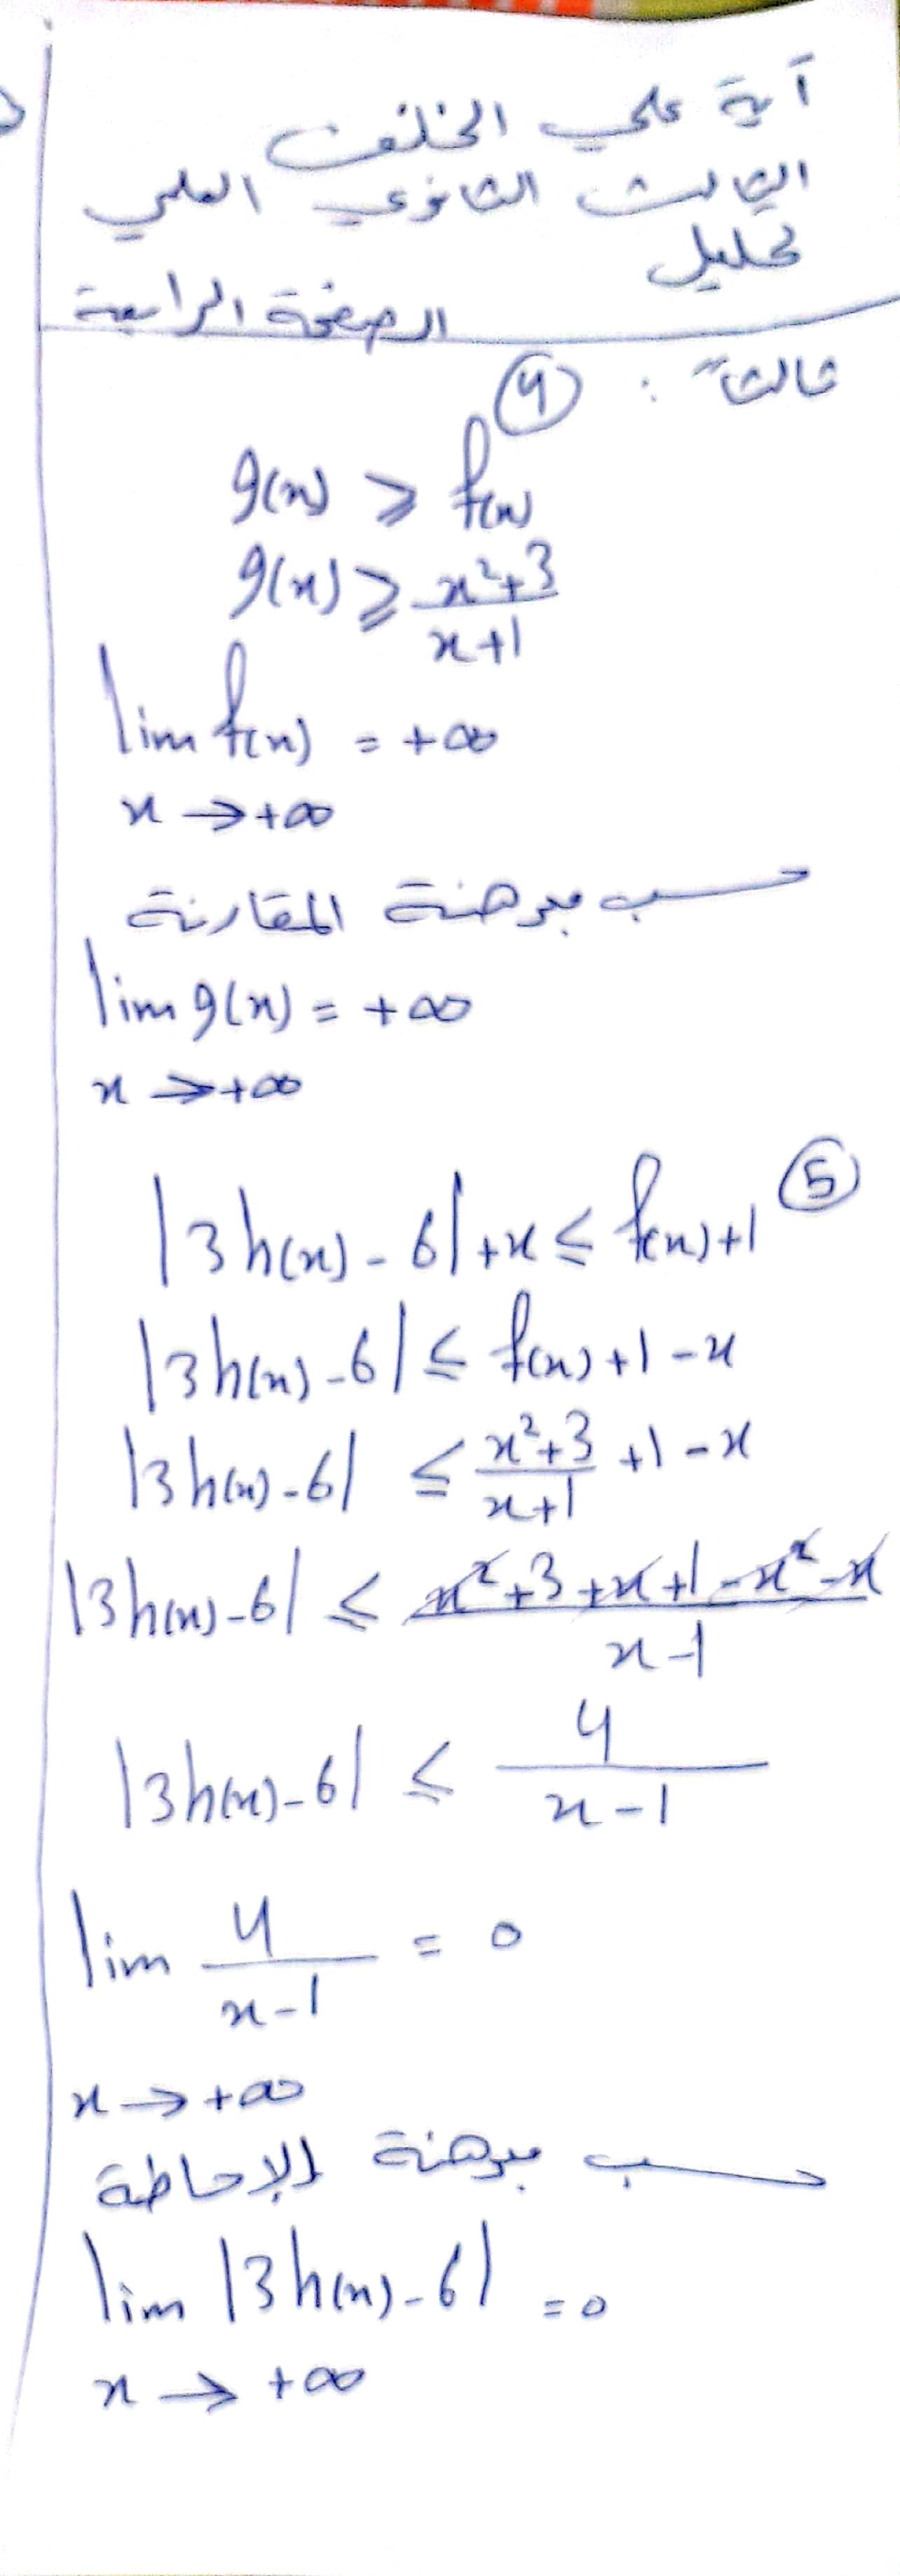 آية علي الخلف
الثالث الثانوي العلمي
تحليل
الصفحة الرابعة
ثالثاً : ④
g(x) ⩾ f(x)
g(x) ⩾ (x²+3)/(x+1)
lim f(x) = +∞
x → +∞
حسب مبرهنة المقارنة
lim g(x) = +∞
x → +∞
⑤
|3h(x) - 6| + x ≤ f(x) + 1
|3h(x) - 6| ≤ f(x) + 1 - x
|3h(x) - 6| ≤ (x²+3)/(x+1) + 1 - x
|3h(x) - 6| ≤ (x² + 3 + x + 1 - x² - x)/(x - 1)
|3h(x) - 6| ≤ 4/(x - 1)
lim 4/(x - 1) = 0
x → +∞
حسب مبرهنة الإحاطة
lim |3h(x) - 6| = 0
x → +∞